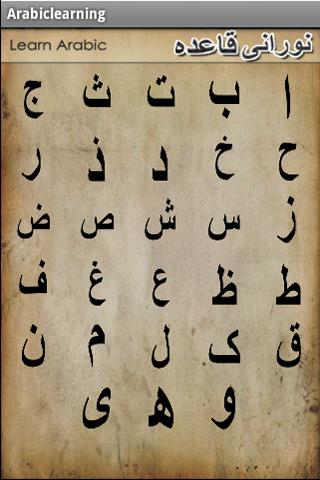 Arabiclearning
Learn Arabic نورانی قاعده
ا ب ت ث ج
ح خ د ذ ر
ز س ش ص ض
ط ظ ع غ ف
ق ک ل م ن
و ھ ی